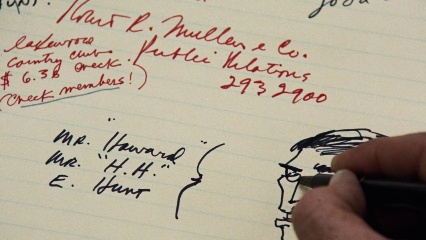 Robert R. Mullen & Co.
Public Relations
293 2900
Lakewood
country club
$ 6.36 check.
(check members!)
"
Mr. Howard"
Mr. "H.H."
E. Hunt